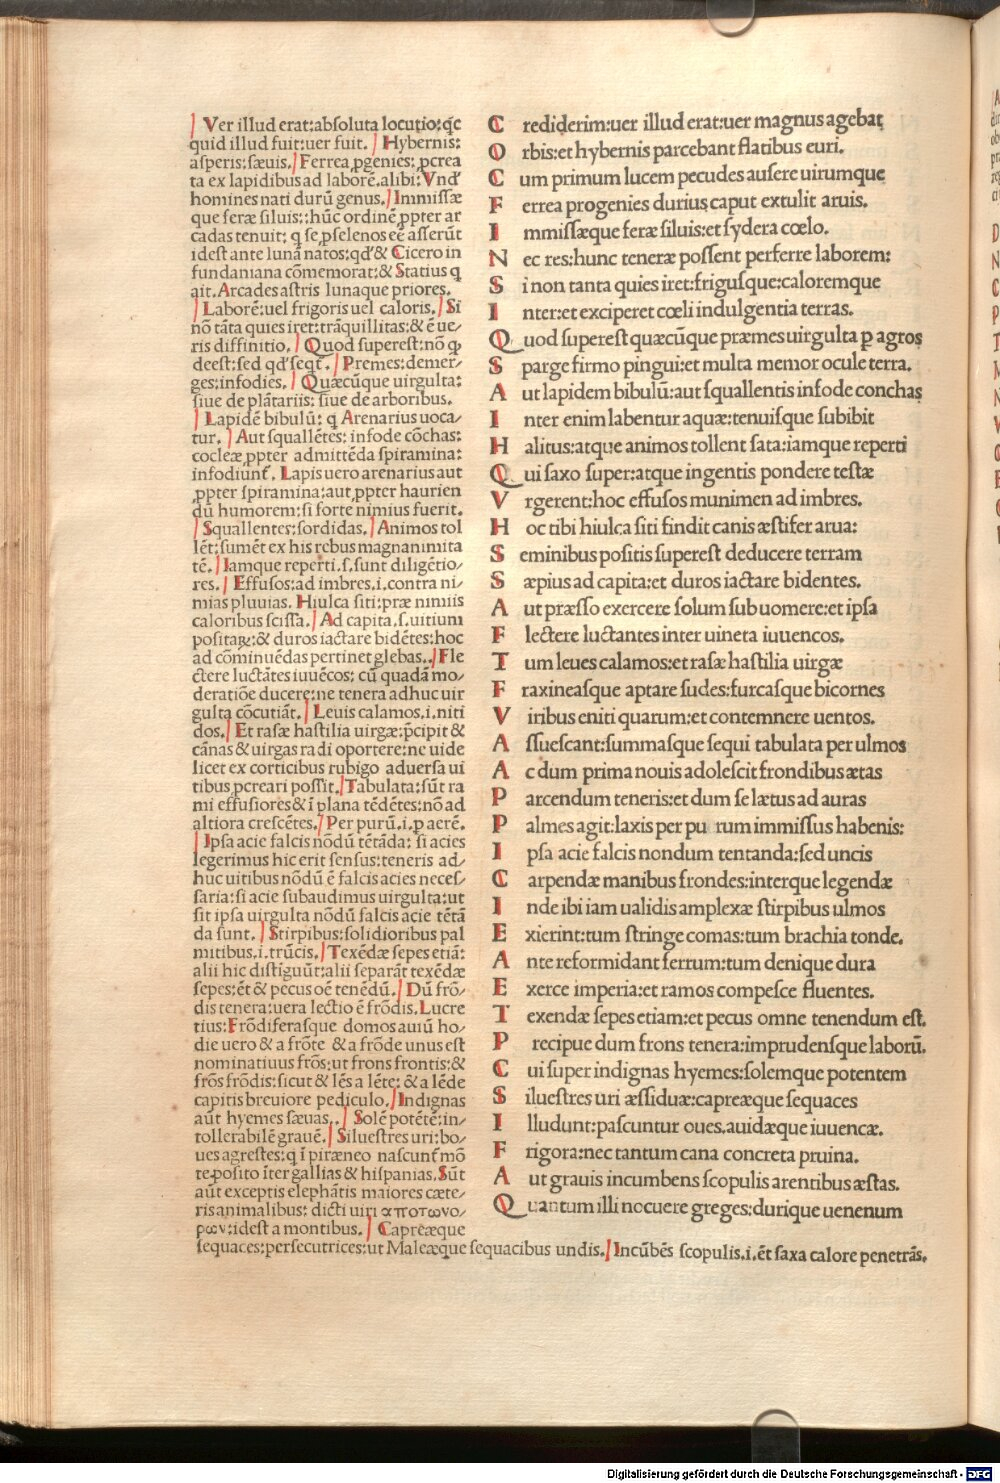 Ver illud erat:absoluta locutio:q̄c
quid illud fuit:uer fuit. Hybernis:
asperis:sæuis. Ferrea ꝓgenies: ꝓcrea
ta ex lapidibus ad laborē.alibi: Vnd'
homines nati durū genus. Immissæ
que feræ siluis: hūc ordinē ꝓpter ar
cadas tenuit: q se ꝓselenos eē asserūt
idest ante lunā natos:qd' & Cicero in
fundaniana cōmemorat:& Statius q
ait. Arcades astris lunaque priores.
Laborē:uel frigoris uel caloris. Si
nō tāta quies iret:trāquillitas:& ē ue/
ris diffinitio. Quod superest:nō ꝙ
deest:sed qd' seqt̄. Premes:demer/
ges:infodies. Quæcūque uirgulta:
siue de plātariis: siue de arboribus.
Lapidē bibulū: q Arenarius uoca/
tur. Aut squallētes: infode cōchas:
cocleæ ꝓpter admittēda spiramina:
infodiunt̄. Lapis uero arenarius aut
ꝓpter spiramina:aut ꝓpter haurien
dū humorem: si forte nimius fuerit.
Squallentes:sordidas. Animos tol
lēt:sumēt ex his rebus magnanimita
tē. Iamque reperti.s.sunt diligētio/
res. Effusos:ad imbres.i.contra ni/
mias pluuias. Hiulca siti:præ nimiis
caloribus scissa. Ad capita.s.uitium
positaꝝ:& duros iactare bidētes:hoc
ad cōminuēdas pertinet glebas. Fle
ctere luctātes iuuēcos: cū quadā mo/
deratiōe ducere:ne tenera adhuc uir
gulta cōcutiāt. Leuis calamos.i.niti
dos. Et rasæ hastilia uirgæ:p̄cipit &
cānas & uirgas radi oportere:ne uide
licet ex corticibus rubigo aduersa ui
tibus ꝓcreari possit. Tabulata:sūt ra
mi effusiores & ī plana tēdētes:nō ad
altiora crescētes. Per purū.i.ꝑ aerē.
Ipsa acie falcis nōdū tētāda: si acies
legerimus hic erit sensus:teneris ad/
huc uitibus nōdū ē falcis acies neces/
saria:si acie subaudimus uirgulta:ut
sit ipsa uirgulta nōdū falcis acie tētā
da sunt. Stirpibus:solidioribus pal
mitibus.i.trūcis. Texēdæ sepes etiā:
alii hic distīguūt:alii separāt texēdæ
sepes:ēt & pecus oē tenēdū. Dū frō/
dis tenera:uera lectio ē frōdis.Lucre
tius:Frōdiferasque domos auiū ho/
die uero & a frōte & a frōde unus est
nominatiuus frōs:ut frons frontis:&
frōs frōdis:sicut & lēs a lēte: & a lēde
capitis breuiore pediculo. Indignas
aūt hyemes sæuas. Solē potētē:in/
tollerabilē grauē. Siluestres uri:bo/
ues agrestes:q ī piræneo nascunt̄ mō
te posito īter gallias & hispanias.Sūt
aūt exceptis elephātis maiores cæte/
ris animalibus: dicti uiri αποτωνο/
ρων:idest a montibus. Capreæque
sequaces:persecutrices:ut Maleæque sequacibus undis. Incūbēs scopulis.i.ēt saxa calore penetrās.
C rediderim:uer illud erat:uer magnus agebat
O rbis:et hybernis parcebant flatibus euri.
C um primum lucem pecudes ausere uirumque
F errea progenies durius caput extulit aruis.
I mmissæque feræ siluis:et sydera cœlo.
N ec res:hunc teneræ possent perferre laborem:
S i non tanta quies iret:frigusque:caloremque
I nter:et exciperet cœli indulgentia terras.
Q uod superest quæcūque præmes uirgulta ꝑ agros
S parge firmo pingui:et multa memor ocule terra.
A ut lapidem bibulū:aut squallentis infode conchas
I nter enim labentur aquæ:tenuisque subibit
H alitus:atque animos tollent sata:iamque reperti
Q ui saxo super:atque ingentis pondere testæ
V rgerent:hoc effusos munimen ad imbres.
H oc tibi hiulca siti findit canis æstifer arua:
S eminibus positis superest deducere terram
S æpius ad capita:et duros iactare bidentes.
A ut præsso exercere solum sub uomere:et ipsa
F lectere luctantes inter uineta iuuencos.
T um leues calamos:et rasæ hastilia uirgæ
F raxineasque aptare sudes:furcasque bicornes
V iribus eniti quarum:et contemnere uentos.
A ssuescant:summasque sequi tabulata per ulmos
A c dum prima nouis adolescit frondibus ætas
P arcendum teneris:et dum se lætus ad auras
P almes agit:laxis per pu rum immissus habenis:
I psa acie falcis nondum tentanda:sed uncis
C arpendæ manibus frondes:interque legendæ
I nde ibi iam ualidis amplexæ stirpibus ulmos
E xierint:tum stringe comas:tum brachia tonde.
A nte reformidant ferrum:tum denique dura
E xerce imperia:et ramos compesce fluentes.
T exendæ sepes etiam:et pecus omne tenendum est.
P recipue dum frons tenera:imprudensque laborū.
C ui super indignas hyemes:solemque potentem
S iluestres uri æssiduæ:capreæque sequaces
I lludunt:pascuntur oues.auidæque iuuencæ.
F rigora:nec tantum cana concreta pruina.
A ut grauis incumbens scopulis arentibus æstas.
Q uantum illi nocuere greges:durique uenenum
Digitalisierung gefördert durch die Deutsche Forschungsgemeinschaft - DFG